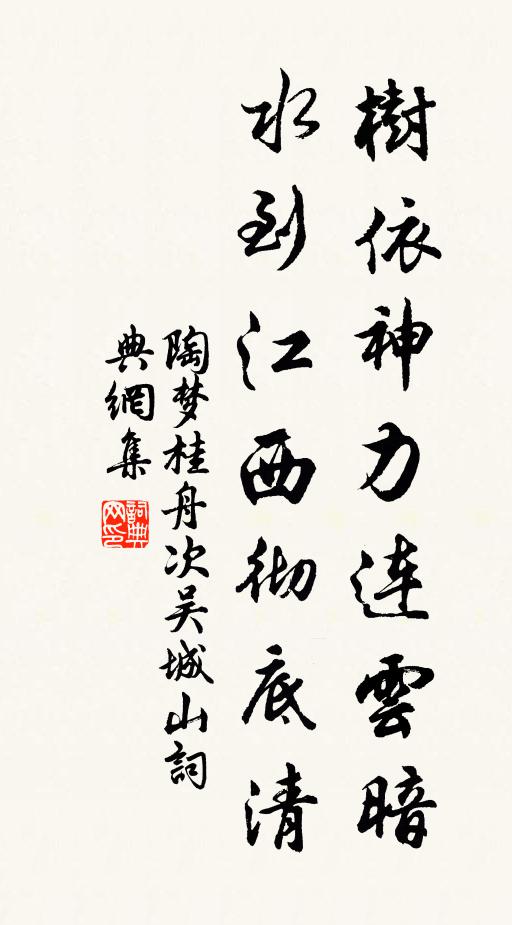 樹依神力連雲暗
水到江西彻底清
陶梦桂舟次吴城山詞
典網集
詞典
网印